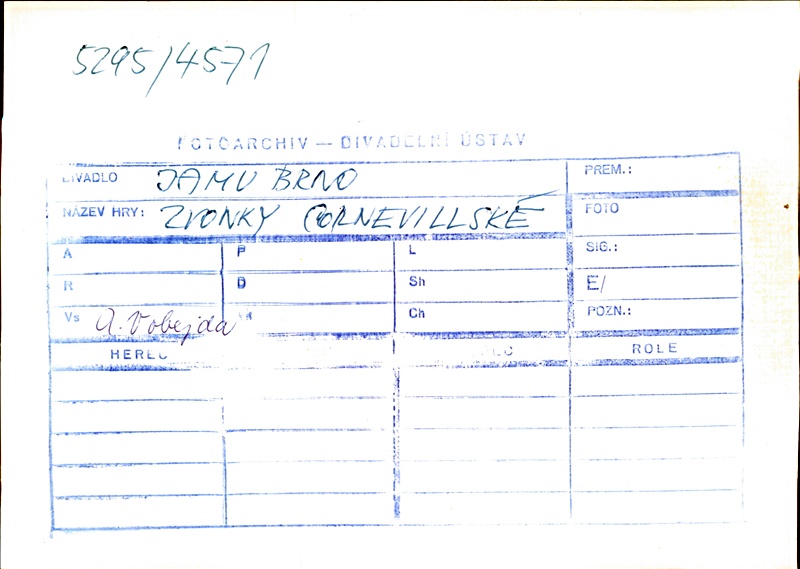 5295/4571
FOTOARCHIV — DIVADELNÍ ÚSTAV
DIVADLO JAMU BRNO PREM.:
NÁZEV HRY: ZVONKY CORNEVILLSKÉ FOTO
A P L SIG.:
R D Sh E/
Vs A. Vobejda Ch POZN.:
HEREC ROLE